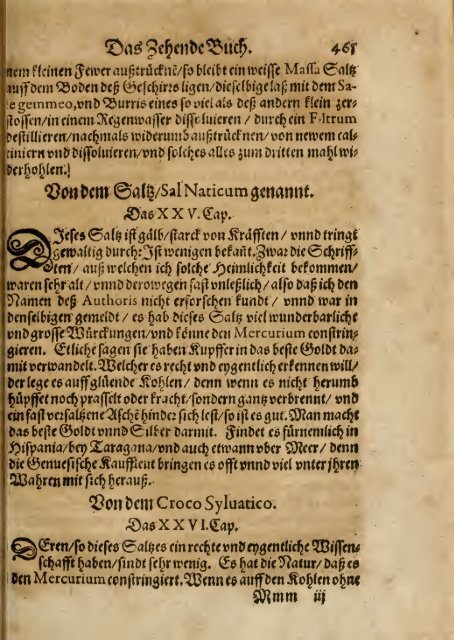 Das Zehende Buch. 461
nem kleinen Fewer außtrücknē/so bleibt ein weisse Massa Saltz
auff dem Boden deß Geschirrs ligen/dieselbige laß mit dem Sa-
le gemmeo, vnd Burris eines so viel als deß andern klein zer-
stossen/in einem Regenwasser dissoluieren / durch ein Filtrum
destillieren/nachmals widerumb außtrücknen/von newem cal-
cinieren vnd dissoluieren/vnd solches alles zum dritten mahl wi-
derhohlen.
Von dem Saltz/Sal Naticum genannt.
Das XXV. Cap.
DJeses Saltz ist gälb/starck von Kräfften / vnnd tringt
gewaltig durch: Jst wenigen bekañt. Zwar die Schriff-
ten/ auß welchen ich solche Heimlichkeit bekommen/
waren sehr alt/ vnnd derowegen fast vnleßlich/ also daß ich den
Namen deß Authoris nicht erforschen kundt/ vnnd war in
denselbigen gemeldt/ es hab dieses Saltz viel wunderbarliche
vnd grosse Würckungen/vnd könne den Mercurium constrin-
gieren. Etliche sagen sie haben Kupffer in das beste Goldt da-
mit verwandelt. Welcher es recht vnd eygentlich erkennen will/
der lege es auff glüende Kohlen/ denn wenn es nicht herumb
hüpffet noch prasselt oder kracht/sondern gantz verbrennt/ vnd
ein fast versaltzene Asche hinder sich lest/so ist es gut. Man macht
das beste Goldt vnnd Silber darmit. Findet es fürnemlich in
Hispania/bey Taragana/vnd auch etwann vber Meer/ denn
die Genuesische Kauffleut bringen es offt vnnd viel vnter jhren
Wahren mit sich herauß.
Von dem Croco Syluatico.
Das XXVI. Cap.
DEren/so dieses Saltzes ein rechte vnd eygentliche Wissen-
schafft haben/findt sehr wenig. Es hat die Natur/daß es
den Mercurium constringiert. Wenn es auff den Kohlen ohne
Mmm iij